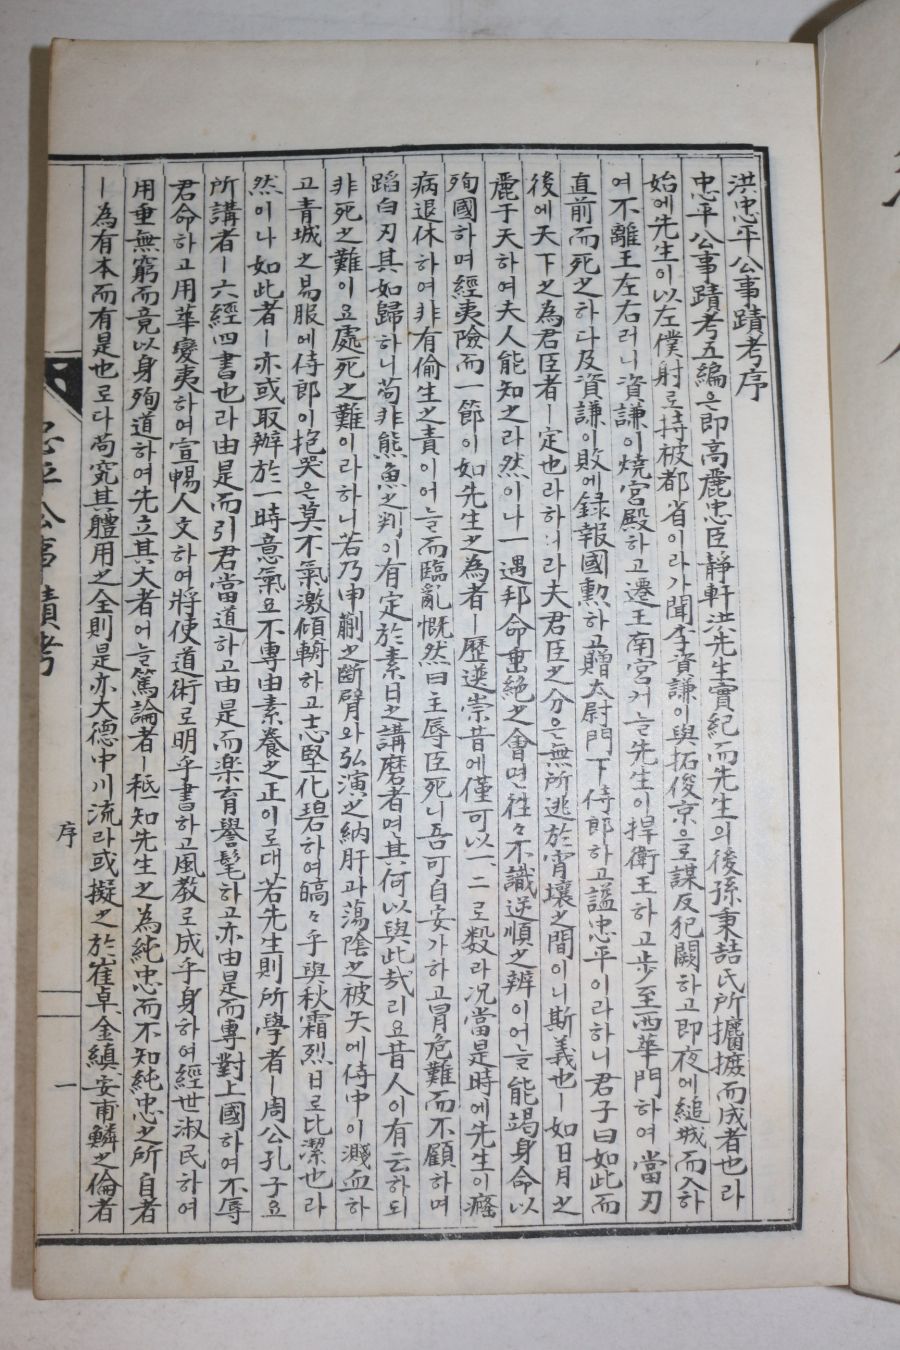 洪忠平公事蹟考序
忠平公事蹟考五編은即高麗忠臣靜軒洪先生實紀而先生의後孫秉喆氏所攟摭而成者也라
始에先生이以左僕射로持被都省이라가聞李資謙이與拓俊京으로謀反犯闕하고即夜에縋城而入하
여不離王左右러니資謙이燒宮殿하고遷王南宮커늘先生이捍衛王하고步至西華門하여當刃
直前而死之하다及資謙이敗에録報國勲하고贈太尉門下侍郎하고諡忠平이라하니君子曰如此而
後에天下之為君臣者ㅣ定也라하니라夫君臣之分은無所逃於霄壤之間이니斯義也ㅣ如日月之
麗于天하여夫人能知之라然이나一遇邦命重絶之會면徃々不識逆順之辨이어늘能竭身命以
殉國하며經夷險而一節이如先生之為者ㅣ歷選崇昔에僅可以一、二로数라况當是時에先生이癃
病退休하여非有偷生之責이어늘而臨亂慨然曰主辱臣死니吾可自安가하고冒危難而不顧하며
蹈白刃其如歸하니苟非熊魚之判이有定於素日之講磨者면其何以與此哉리요昔人이有云하되
非死之難이요處死之難이라하니若乃申蒯之断臂와弘演之納肝과蕩陰之被矢에侍中이濺血하
고青城之易服에侍郎이抱哭은莫不氣激傾輈하고志堅化碧하여皜々乎與秋霜烈日로比潔也라
然이나如此者ㅣ亦或取辦於一時意氣요不專由素養之正이로대若先生則所學者ㅣ周公孔子요
所講者ㅣ六經四書也라由是而引君當道하고由是而楽育譽髦하고亦由是而專對上國하여不辱
君命하고用華變夷하여宣暢人文하여將使道術로明乎書하고風教로成乎身하여經世淑民하여
用垂無窮而竟以身殉道하여先立其大者어늘篤論者ㅣ秪知先生之為純忠而不知純忠之所自者
ㅣ為有本而有是也로다苟究其體用之全則是亦大德中川流라或擬之於崔卓金縝安甫鱗之倫者
忠平公事蹟考
序
一